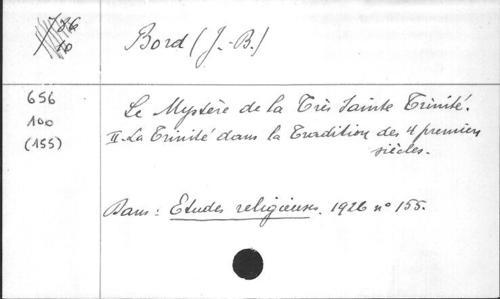 26
10
Bord (J.-B.)
656
100
(155)
Le Mystère de la Très Sainte Trinité.
II. La Trinité dans la Tradition des 4 premiers
siècles.
Dans : Etudes religieuses. 1926 n° 155.